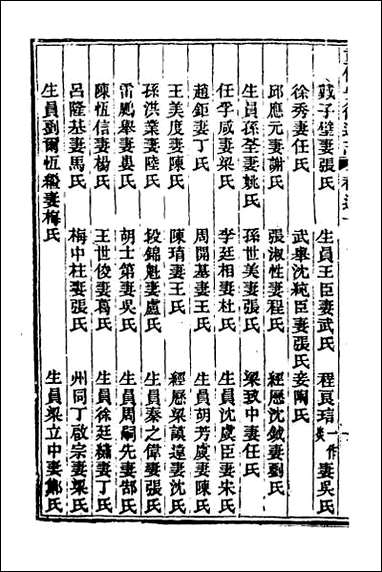 戴子瑩妻張氏　生員王臣妻武氏　程夏瑄一作琰妻吳氏
徐秀妻任氏　武舉沈宛臣妻張氏妾陶氏
邱應元妻謝氏　張淑性妻程氏　經歷沈鉞妻劉氏
生員孫荃妻姚氏　孫世美妻張氏　梁致中妻任氏
任孚咸妻梁氏　李廷相妻杜氏　生員沈虞臣妻朱氏
趙鉅妻丁氏　周開基妻王氏　生員胡芳虞妻陳氏
王美度妻陳氏　陳瑱妻王氏　經歷梁議達妻沈氏
孫洪業妻陸氏　段錦魁妻盧氏　生員秦之偉妻張氏
雷鵰舉妻婁氏　胡士第妻吳氏　生員周嗣先妻郜氏
陳恆信妻楊氏　王世俊妻葛氏　生員徐廷繡妻丁氏
呂隆基妻馬氏　梅中柱妻張氏　州同丁啟宗妻梁氏
生員劉爾恆繼妻梅氏　生員梁立中妻鄭氏